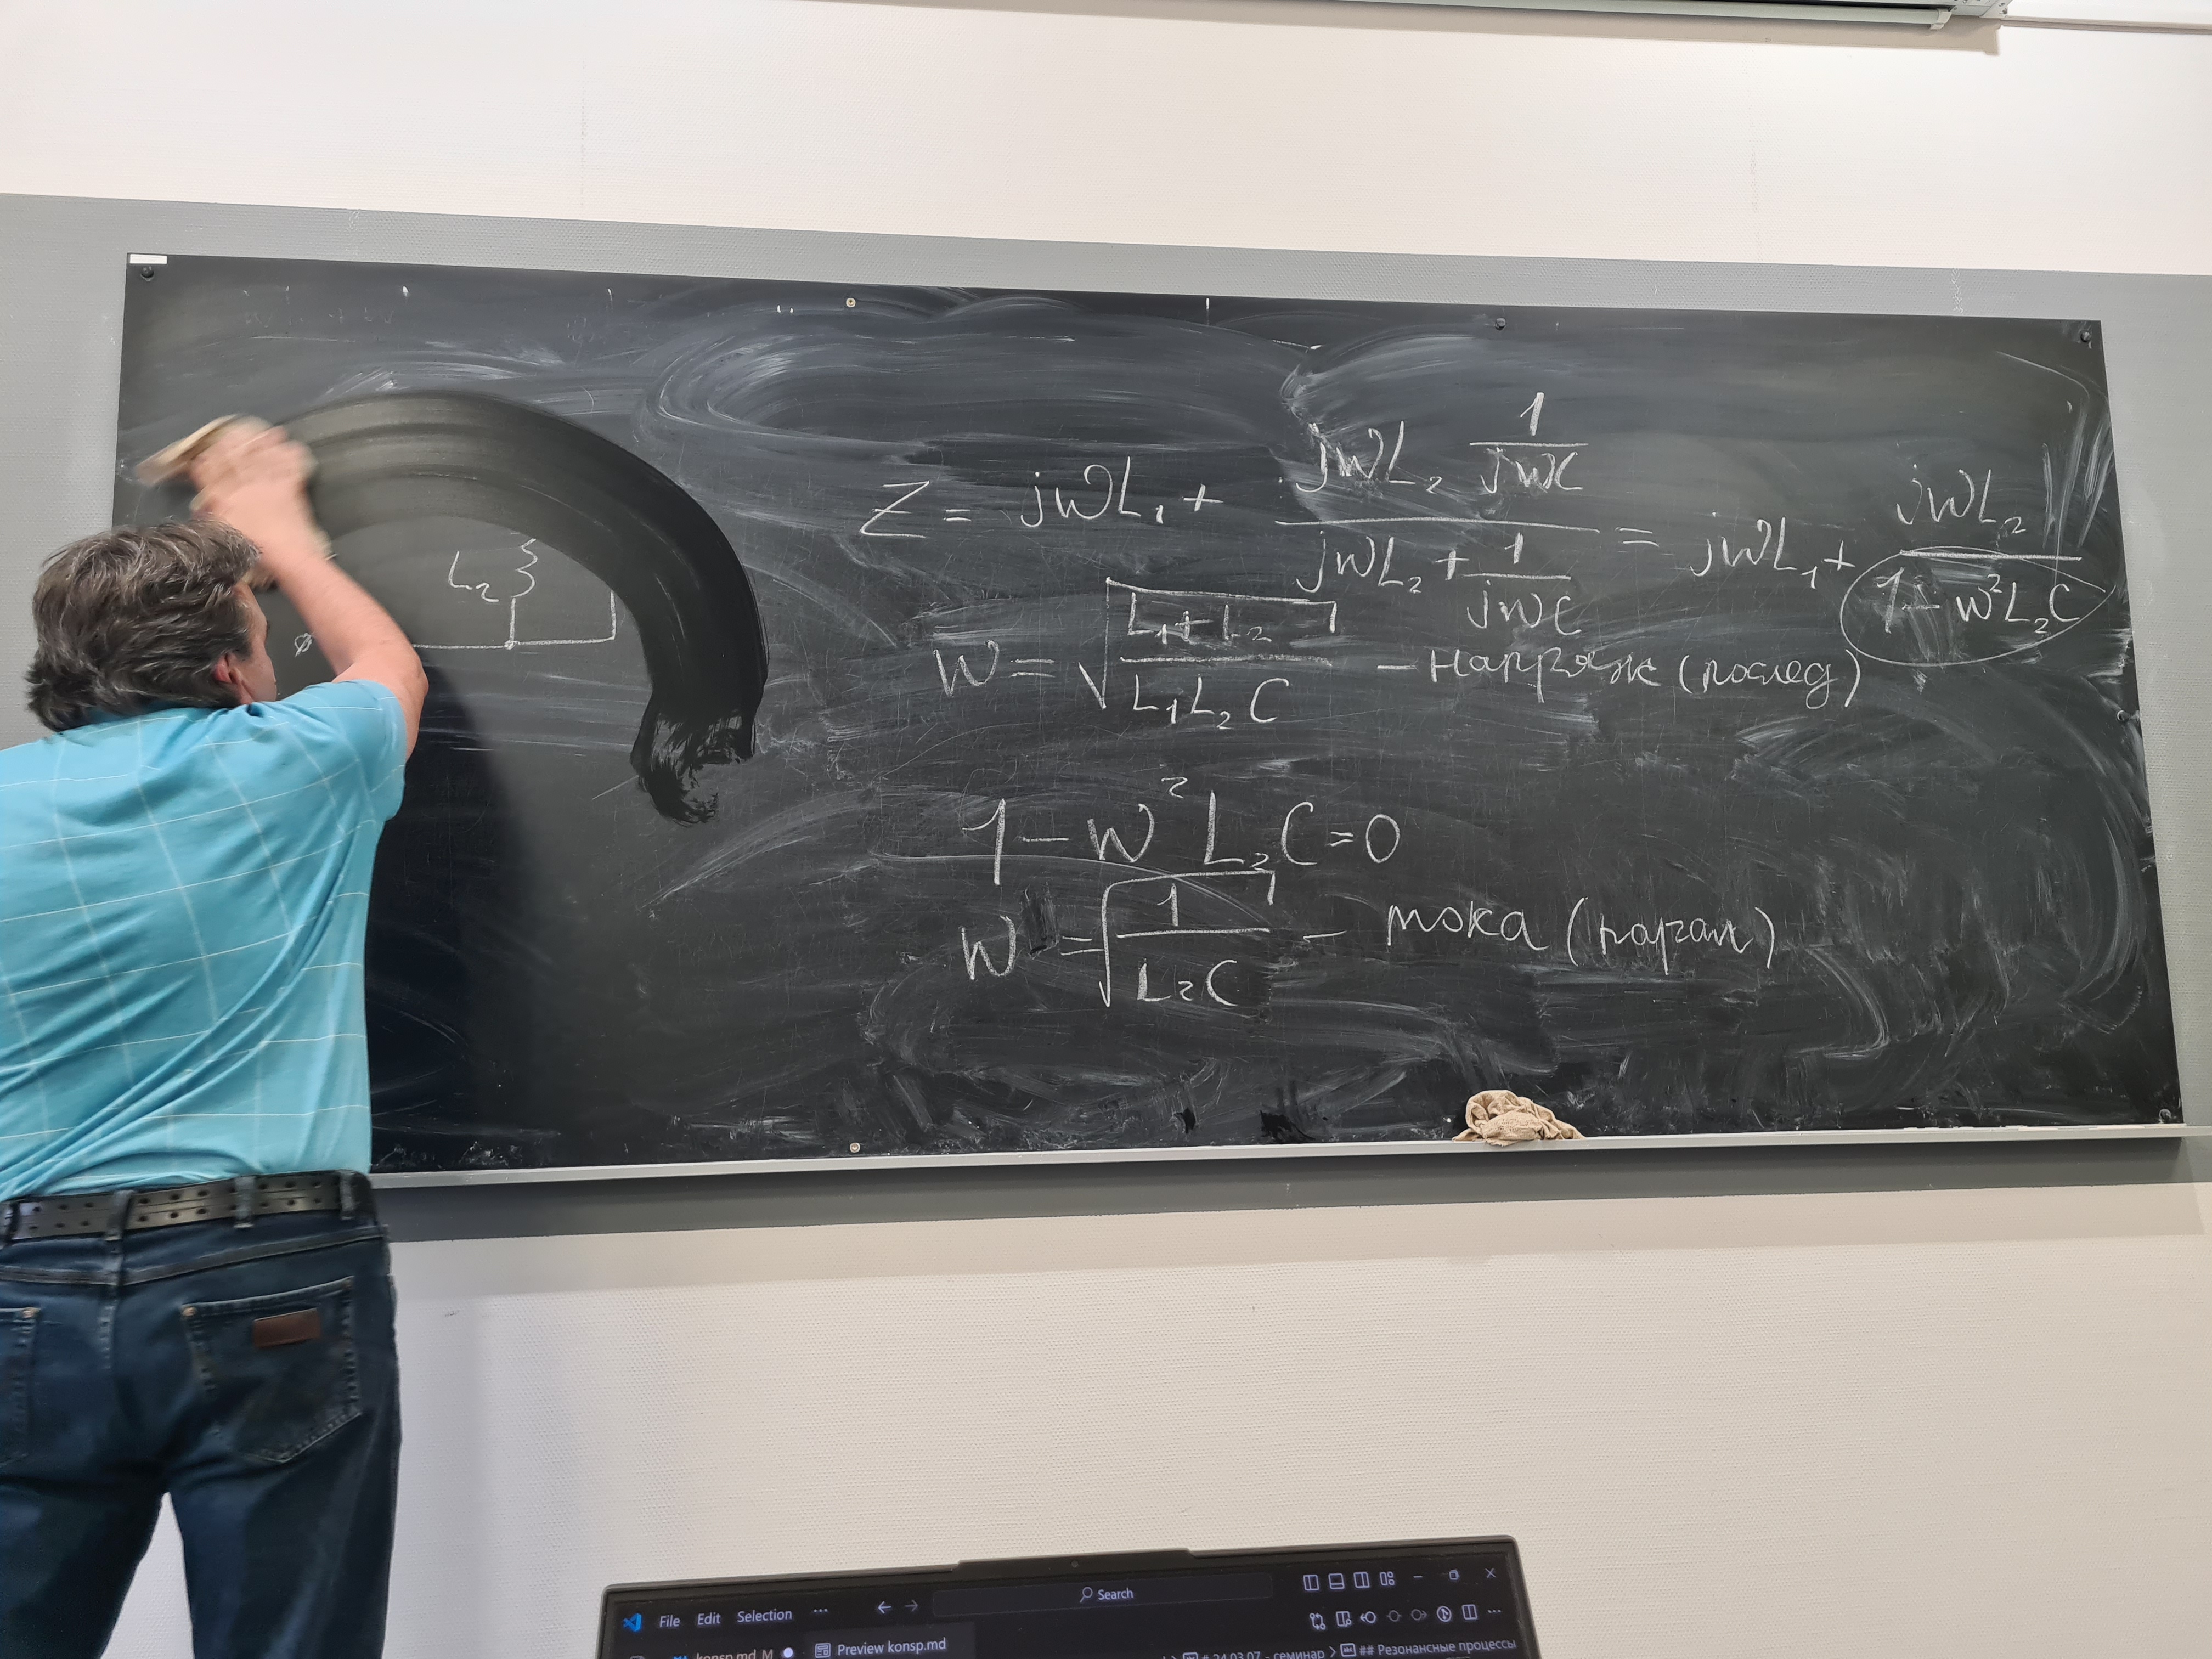 L₂
Z = jωL₁ + (jωL₂ 1/jωC)/(jωL₂ + 1/jωC) = jωL₁ + jωL₂/(1 - ω²L₂C)
ω = √((L₁ + L₂)/(L₁L₂C)) - напряж (послед)
1 - ω²L₂C = 0
ω = √(1/(L₂C)) - тока (парал)
File Edit Selection ... Search
konsp.md M Preview konsp.md
# 24.03.07 - семинар > ## Резонансные процессы